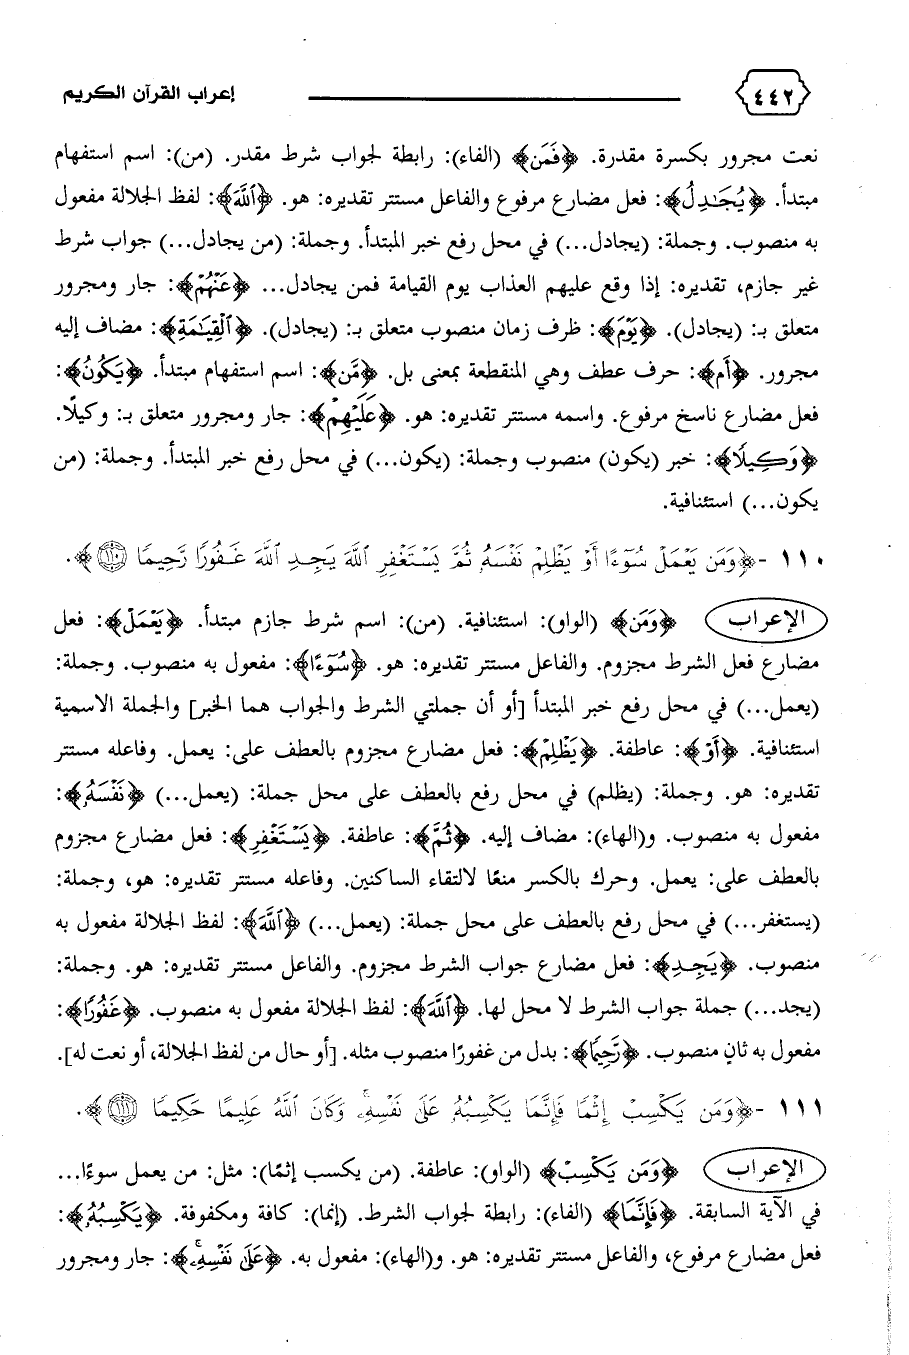 ٤٤٢ إعراب القرآن الكريم
نعت مجرور بكسرة مقدرة. ﴿فَمَن﴾ (الفاء): رابطة لجواب شرط مقدر. (من): اسم استفهام
مبتدأ. ﴿يُجَـٰدِلُ﴾: فعل مضارع مرفوع والفاعل مستتر تقديره: هو. ﴿ٱللَّهَ﴾: لفظ الجلالة مفعول
به منصوب. وجملة: (يجادل...) في محل رفع خبر المبتدأ. وجملة: (من يجادل...) جواب شرط
غير جازم، تقديره: إذا وقع عليهم العذاب يوم القيامة فمن يجادل... ﴿عَنْهُمْ﴾: جار ومجرور
متعلق بـ: (يجادل). ﴿يَوْمَ﴾: ظرف زمان منصوب متعلق بـ: (يجادل). ﴿ٱلْقِيَـٰمَةِ﴾: مضاف إليه
مجرور. ﴿أَم﴾: حرف عطف وهي المنقطعة بمعنى بل. ﴿مَّن﴾: اسم استفهام مبتدأ. ﴿يَكُونُ﴾:
فعل مضارع ناسخ مرفوع. واسمه مستتر تقديره: هو. ﴿عَلَيْهِمْ﴾: جار ومجرور متعلق بـ: وكيلًا.
﴿وَكِيلًا﴾: خبر (يكون) منصوب وجملة: (يكون...) في محل رفع خبر المبتدأ. وجملة: (من
يكون...) استئنافية.
١١٠ -﴿وَمَن يَعْمَلْ سُوٓءًا أَوْ يَظْلِمْ نَفْسَهُۥ ثُمَّ يَسْتَغْفِرِ ٱللَّهَ يَجِدِ ٱللَّهَ غَفُورًا رَّحِيمًا ١١٠﴾.
الإعراب ﴿وَمَن﴾ (الواو): استئنافية. (من): اسم شرط جازم مبتدأ. ﴿يَعْمَلْ﴾: فعل
مضارع فعل الشرط مجزوم. والفاعل مستتر تقديره: هو. ﴿سُوٓءًا﴾: مفعول به منصوب. وجملة:
(يعمل...) في محل رفع خبر المبتدأ [أو أن جملتي الشرط والجواب هما الخبر] والجملة الاسمية
استئنافية. ﴿أَوْ﴾: عاطفة. ﴿يَظْلِمْ﴾: فعل مضارع مجزوم بالعطف على: يعمل. وفاعله مستتر
تقديره: هو. وجملة: (يظلم) في محل رفع بالعطف على محل جملة: (يعمل...) ﴿نَفْسَهُۥ﴾:
مفعول به منصوب. و(الهاء): مضاف إليه. ﴿ثُمَّ﴾: عاطفة. ﴿يَسْتَغْفِرِ﴾: فعل مضارع مجزوم
بالعطف على: يعمل. وحرك بالكسر منعًا لالتقاء الساكنين. وفاعله مستتر تقديره: هو، وجملة:
(يستغفر...) في محل رفع بالعطف على محل جملة: (يعمل...) ﴿ٱللَّهَ﴾: لفظ الجلالة مفعول به
منصوب. ﴿يَجِدِ﴾: فعل مضارع جواب الشرط مجزوم. والفاعل مستتر تقديره: هو. وجملة:
(يجد...) جملة جواب الشرط لا محل لها. ﴿ٱللَّهَ﴾: لفظ الجلالة مفعول به منصوب. ﴿غَفُورًا﴾:
مفعول به ثانٍ منصوب. ﴿رَّحِيمًا﴾: بدل من غفورًا منصوب مثله. [أو حال من لفظ الجلالة، أو نعت له].
١١١ -﴿وَمَن يَكْسِبْ إِثْمًا فَإِنَّمَا يَكْسِبُهُۥ عَلَىٰ نَفْسِهِۦۚ وَكَانَ ٱللَّهُ عَلِيمًا حَكِيمًا ١١١﴾.
الإعراب ﴿وَمَن يَكْسِبْ﴾ (الواو): عاطفة. (من يكسب إثمًا): مثل: من يعمل سوءًا...
في الآية السابقة. ﴿فَإِنَّمَا﴾ (الفاء): رابطة لجواب الشرط. (إنما): كافة ومكفوفة. ﴿يَكْسِبُهُۥ﴾:
فعل مضارع مرفوع، والفاعل مستتر تقديره: هو. و(الهاء): مفعول به. ﴿عَلَىٰ نَفْسِهِۦۚ﴾: جار ومجرور